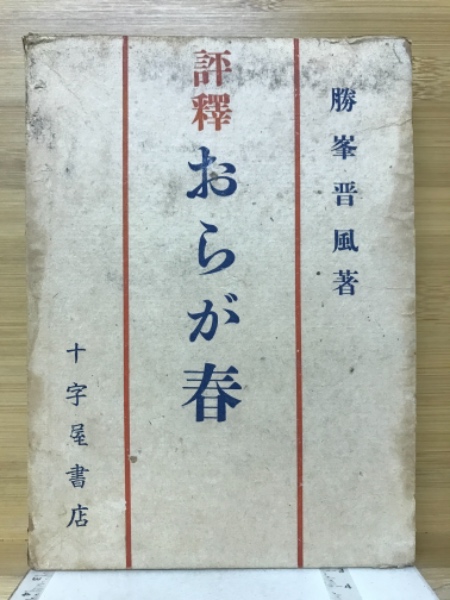 勝峯晋風著
評釋おらが春
十字屋書店